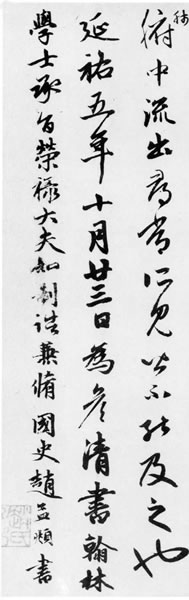 肺
腑中流出尋常所見皆不能及之也
延祐五年十月廿三日為彥清書翰林
學士承旨榮祿大夫知制誥兼脩國史趙孟頫書